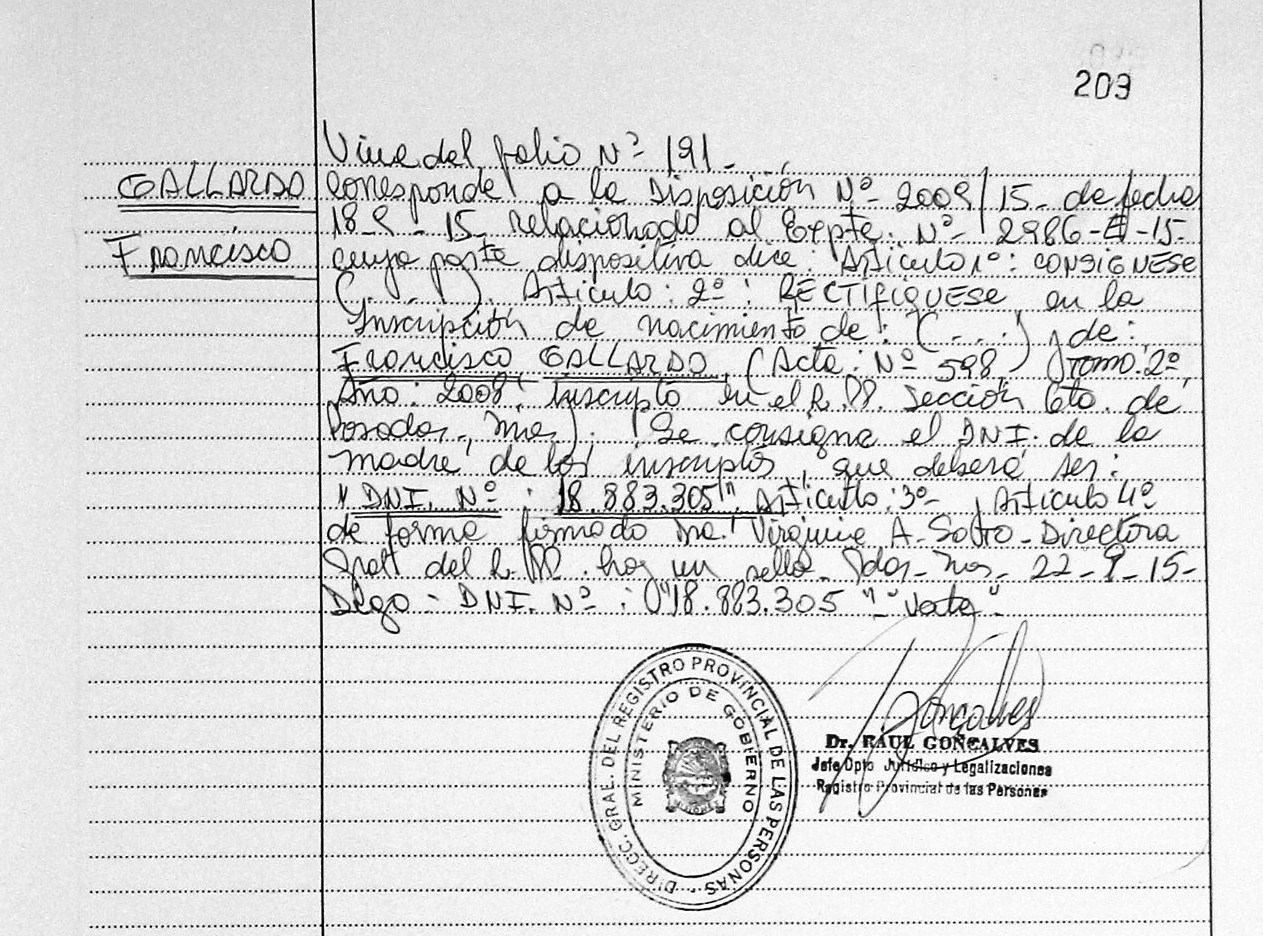 203
Viene del folio Nº 191-
GALLARDO
Corresponde a la Disposición Nº 2009/15- de fecha
18-9-15- relacionado al Expte. Nº- 2986- -15-
Francisco
cuya parte dispositiva dice: Artículo 1º: CONSIGNESE
(....). Artículo: 2º: RECTIFIQUESE en la
Inscripción de nacimiento de: (...) , de:
Francisco GALLARDO (Acta: Nº 598, Tomo: 2º,
Año: 2008, inscripto en el R.PP. Sección 6to. de
Posadas, Mnes). (Se consigna el DNI. de la
madre de los inscriptos, que deberá ser:
"DNI. Nº : 18.883.305". Artículo: 3º- , Artículo 4º
de forma firmado Dra. Virginia A. Sotto- Directora
Gral del R.PP. hay un sello- Pdas- Mns- 22-9-15-
Digo- DNI. Nº : "18.883.305"- "Vale"-
DIRECC. GRAE. DEL REGISTRO PROVINCIAL DE LAS PERSONAS
MINISTERIO DE GOBIERNO
Goncalves
Dr. RAUL GONCALVES
Jefe Dpto Jurídico y Legalizaciones
Registro Provincial de las Personas